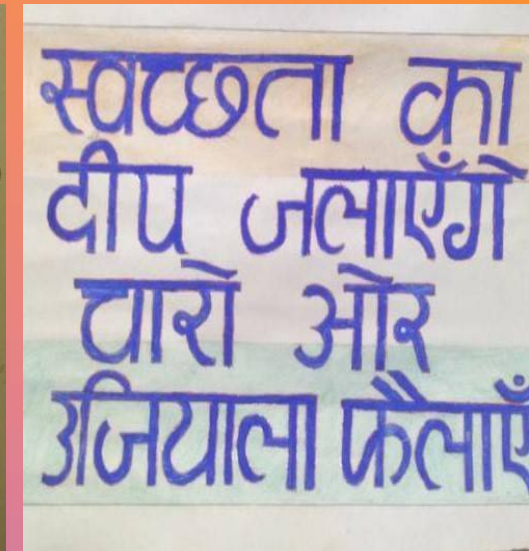 स्वच्छता का
दीप जलाएँगे
चारो ओर
उजियाला फैलाएँ